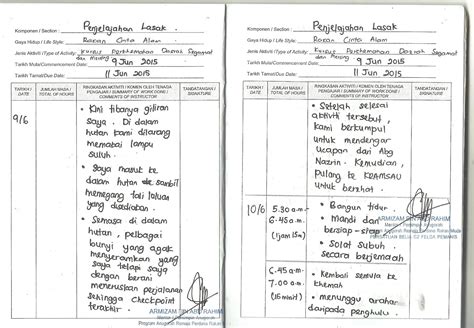 Komponen / Section : Penjelajahan Lasak
Gaya Hidup / Life Style: Rakan Cinta Alam
Jenis Aktiviti/Type of Activity: Kursus Perkhemahan Daerah Segamat
dan Muar
Tarikh Mula/Commencement Date: 9 Jun 2015
Tarikh Tamat/Due Date: 11 Jun 2015
TARIKH / DATE
JUMLAH MASA / TOTAL OF HOURS
RINGKASAN AKTIVITI / KOMEN OLEH TENAGA PENGAJAR / SUMMARY OF WORK DONE / COMMENTS OF INSTRUCTOR
TANDATANGAN / SIGNATURE
9/6
• Kini tibanya giliran
saya. Di dalam
hutan kami dilarang
memakai lampu
suluh.
• Saya masuk ke
dalam hutan sambil
memegang tali laluan
yang disediakan.
• Semasa di dalam
hutan, pelbagai
bunyi yang agak
menyeramkan yang
saya tetapi saya
dengan berani
meneruskan perjalanan
sehingga checkpoint
terakhir.
ARMIZAM BIN ABD RAHIM
Program Anugerah Remaja Perdana Rakan Muda
Komponen / Section : Penjelajahan Lasak
Gaya Hidup / Life Style: Rakan Cinta Alam
Jenis Aktiviti/Type of Activity: Kursus Perkhemahan Daerah Segamat
dan Muar
Tarikh Mula/Commencement Date: 9 Jun 2015
Tarikh Tamat/Due Date: 11 Jun 2015
TARIKH / DATE
JUMLAH MASA / TOTAL OF HOURS
RINGKASAN AKTIVITI / KOMEN OLEH TENAGA PENGAJAR / SUMMARY OF WORK DONE / COMMENTS OF INSTRUCTOR
TANDATANGAN / SIGNATURE
• Setelah selesai
aktiviti tersebut,
kami berkumpul
untuk mendengar
ucapan dari Abg
Nazrin. Kemudian,
pulang ke
untuk berehat.
10/6
5.30 a.m-
6.45 a.m.
(1jam 15m)
• Bangun tidur.
• Mandi dan
bersiap-siap
• Solat subuh
secara berjemaah
ARMIZAM BIN ABD RAHIM
Program Anugerah Remaja Perdana Rakan Muda
PERSATUAN BELIA FELDA PEMANIS
6.45 a.m-
7.00 a.m.
(15 minit)
• Kembali semula ke
khemah
• menunggu arahan
daripada penghulu.